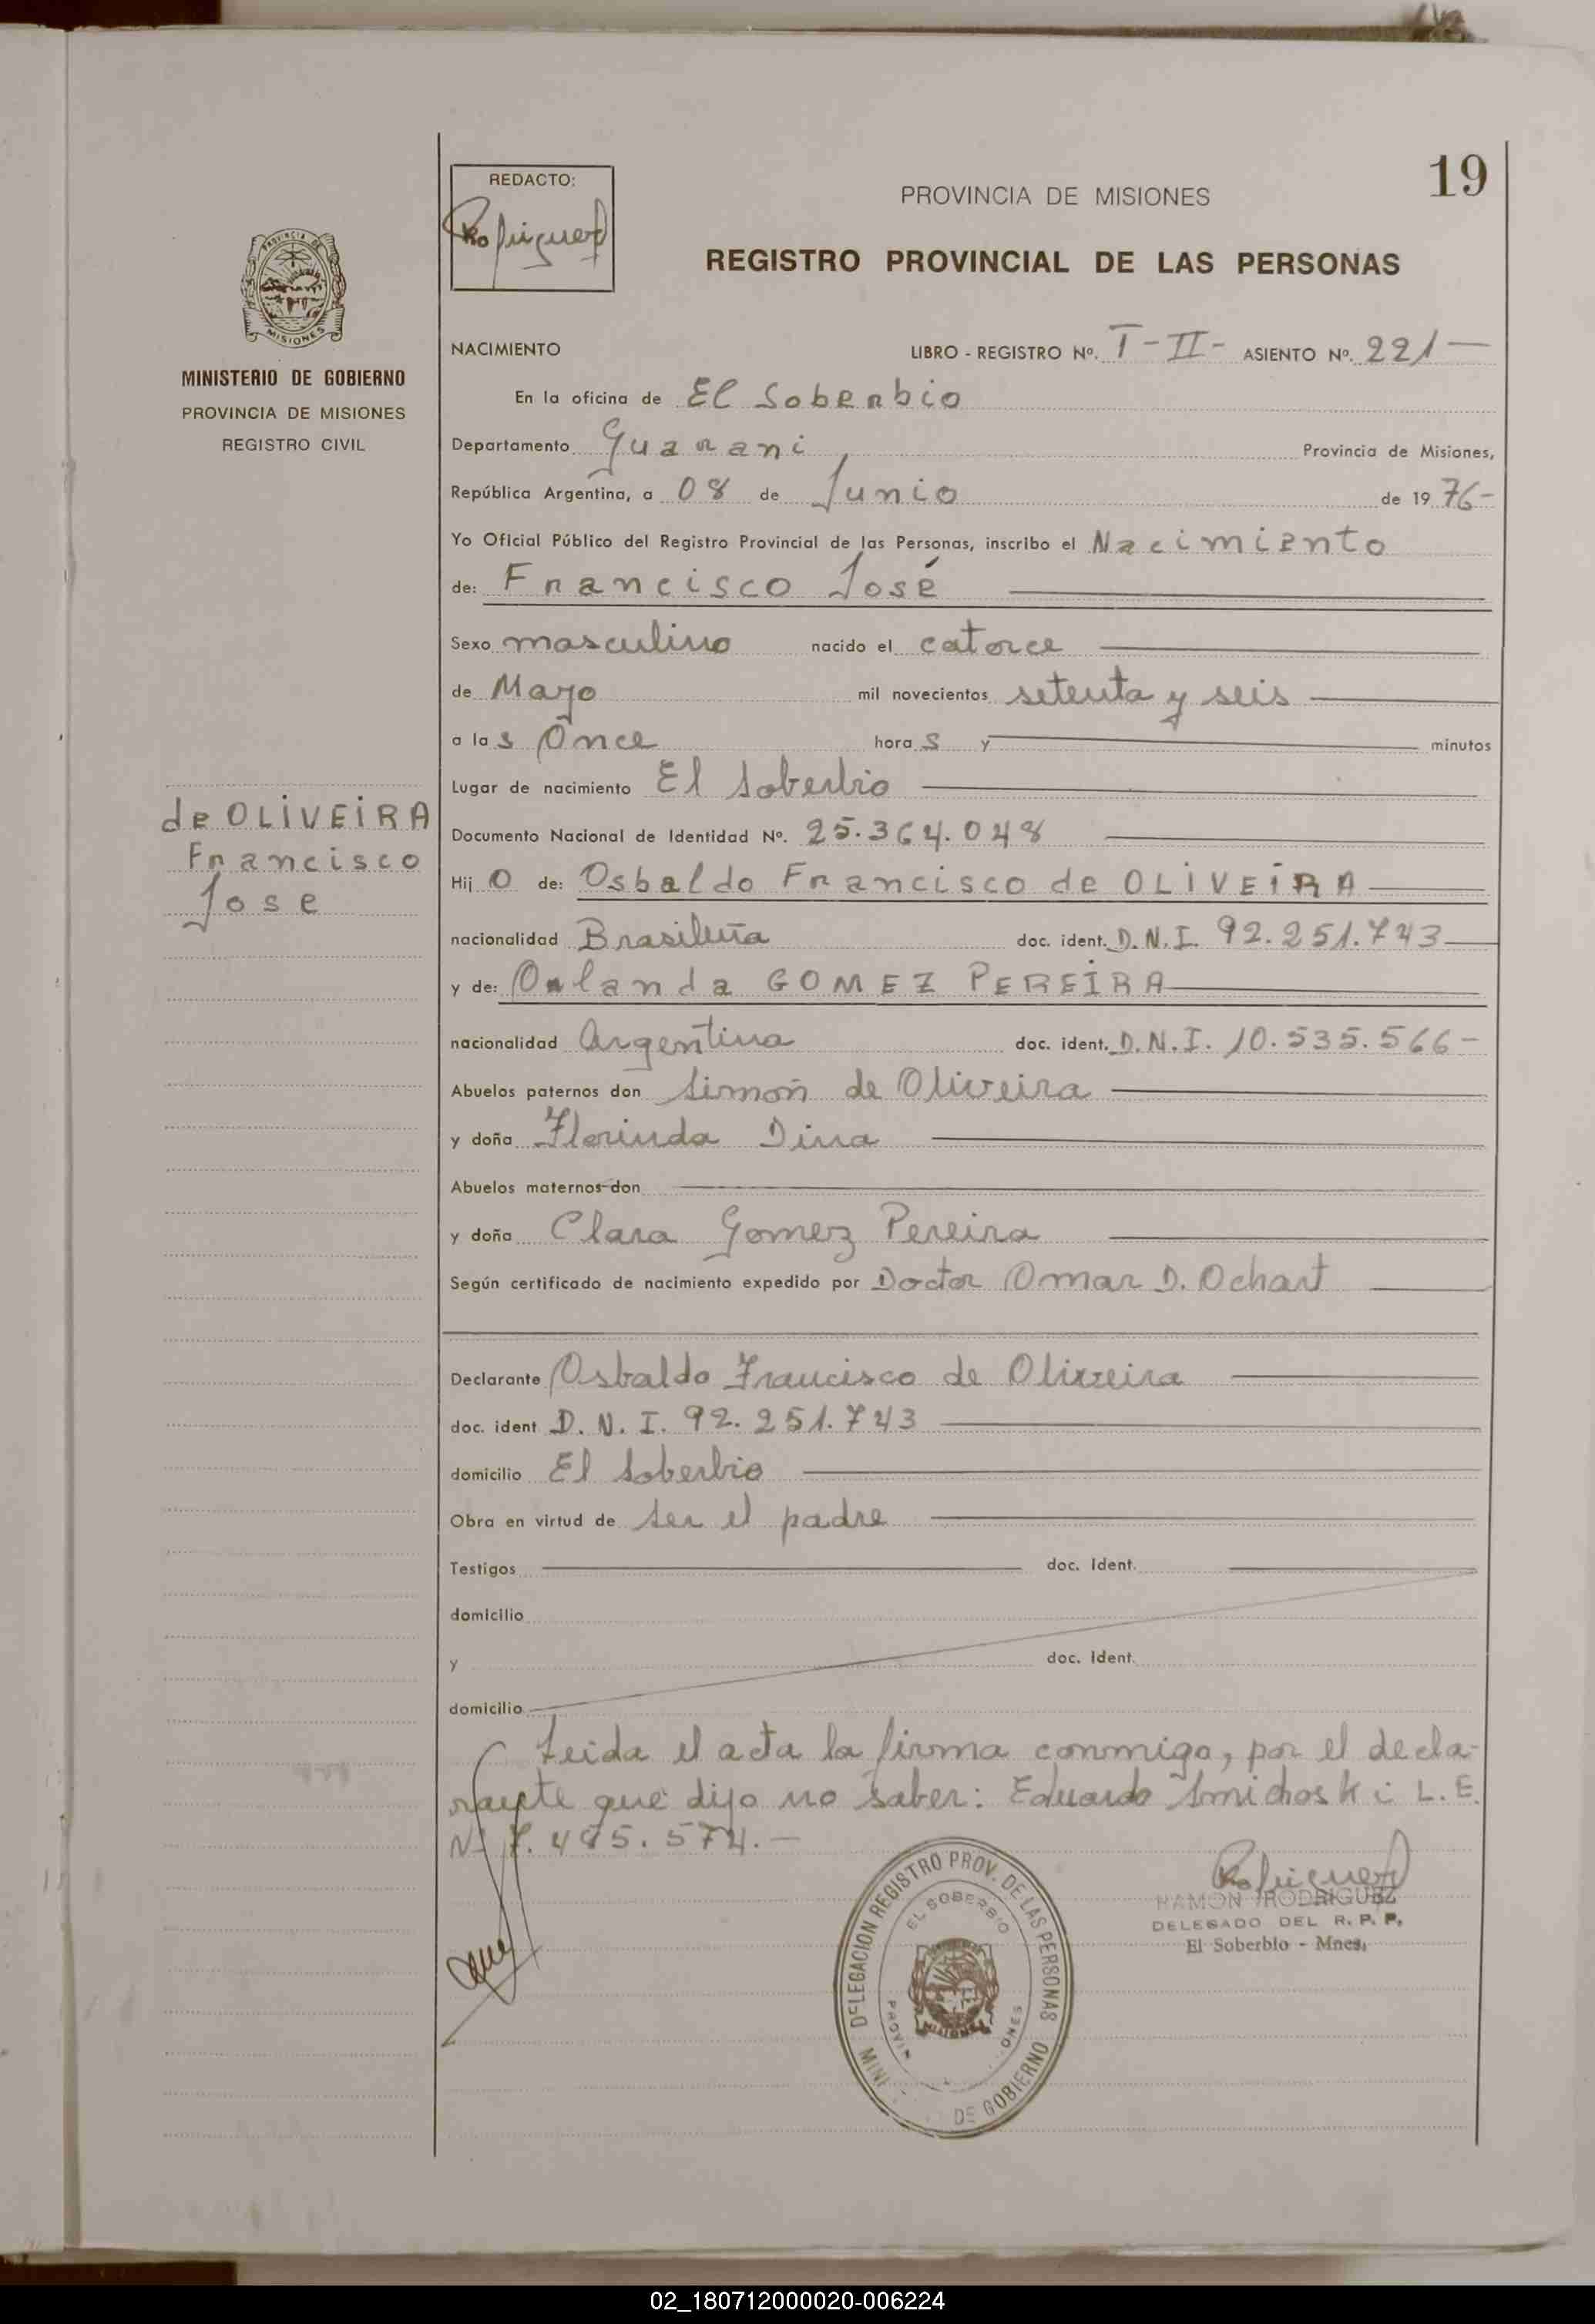 19
REDACTO:
Rodriguez
PROVINCIA DE MISIONES
REGISTRO PROVINCIAL DE LAS PERSONAS
PROVINCIA DE
MISIONES
MINISTERIO DE GOBIERNO
PROVINCIA DE MISIONES
REGISTRO CIVIL
NACIMIENTO LIBRO - REGISTRO Nº. T - II - ASIENTO Nº. 221 —
En la oficina de El Soberbio
Departamento Guarani Provincia de Misiones,
República Argentina, a 08 de Junio de 1976-
Yo Oficial Público del Registro Provincial de las Personas, inscribo el Nacimiento
de: Francisco José
Sexo masculino nacido el catorce
de Mayo mil novecientos setenta y seis
a las Once horas y minutos
Lugar de nacimiento El Soberbio
de OLIVEIRA
Francisco
Jose
Documento Nacional de Identidad Nº. 25.364.048
Hijo de: Osbaldo Francisco de OLIVEIRA
nacionalidad Brasileña doc. ident. D.N.I. 92.251.743
y de: Orlanda GOMEZ PEREIRA
nacionalidad Argentina doc. ident. D.N.I. 10.535.566-
Abuelos paternos don Simón de Oliveira
y doña Florinda Dina
Abuelos maternos don
y doña Clara Gomez Pereira
Según certificado de nacimiento expedido por Doctor Omar D. Ochart
Declarante Osbaldo Francisco de Oliveira
doc. ident D.N.I. 92.251.743
domicilio El Soberbio
Obra en virtud de ser el padre
Testigos doc. Ident.
domicilio
y doc. Ident.
domicilio
Leida el acta la firma conmigo, por el decla-
rante que dijo no saber: Eduardo Smichoski L.E.
Nº 7.485.574.-
Rodriguez
RAMON RODRIGUEZ
DELEGADO DEL R. P. P.
El Soberbio - Mnes.
DELEGACION REGISTRO PROV. DE LAS PERSONAS
EL SOBERBIO
DE GOBIERNO
02_180712000020-006224